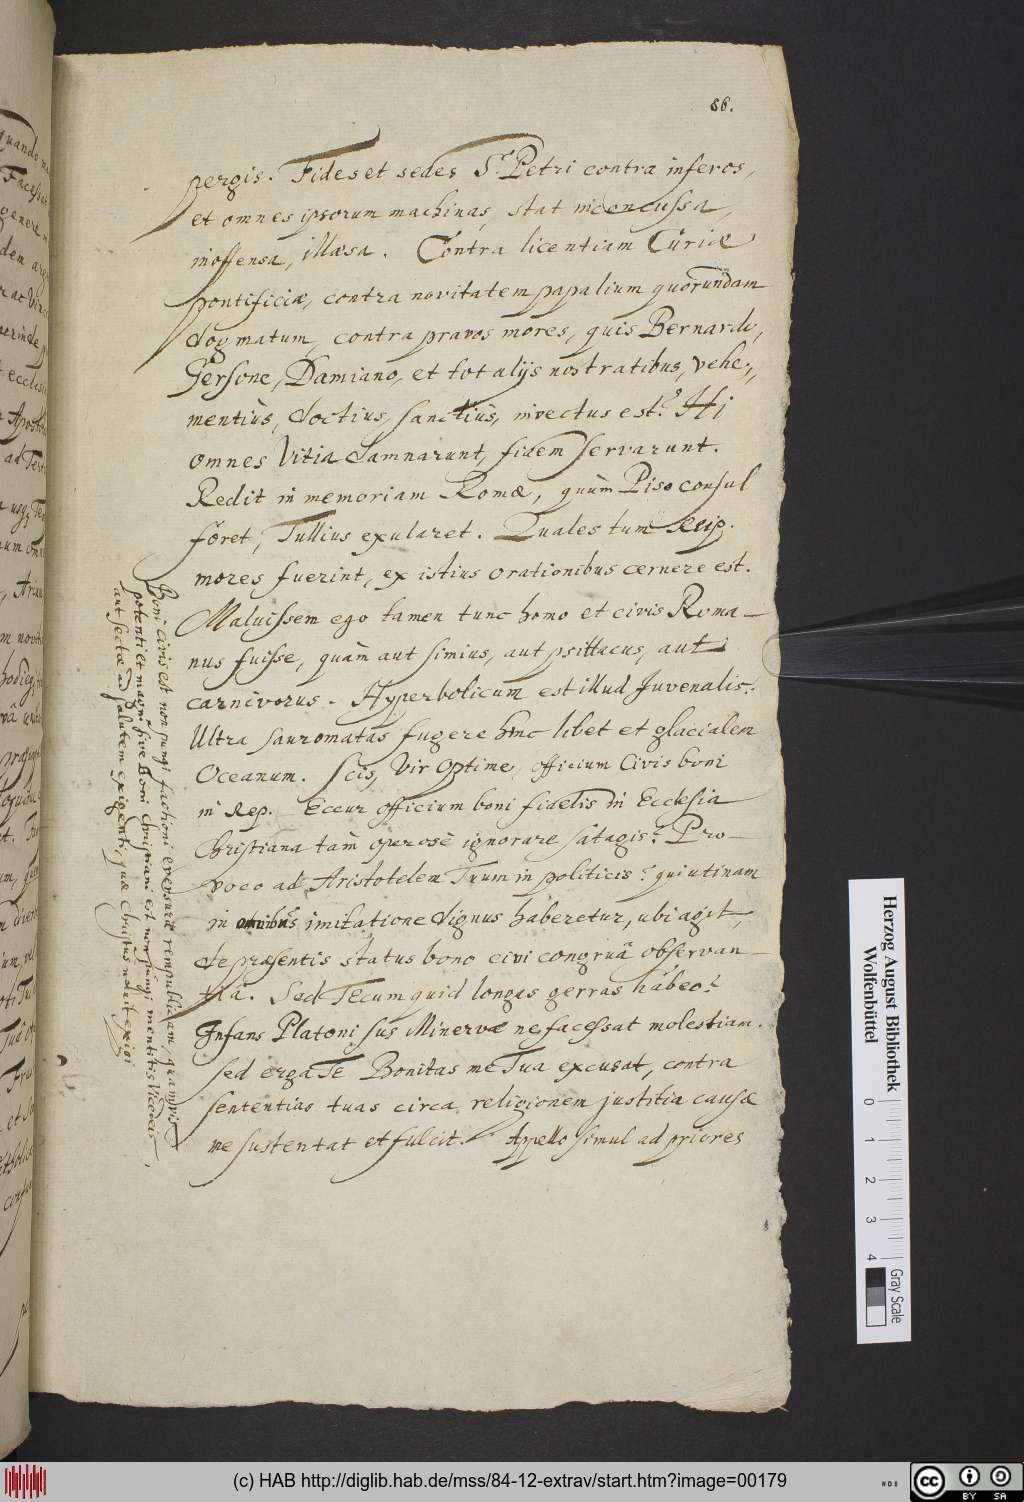 86.
pergis. Fides et sedes S. Petri contra inferos,
et omnes ipsorum machinas, stat inconcussa,
inoffensa, illæsa. Contra licentiam Curiæ
pontificiæ, contra novitatem papalium quorundam
dogmatum, contra pravos mores, quis Bernardo,
Gersone, Damiano, et tot alijs nostratibus, vehe-
mentiùs, doctius, sanctiùs, invectus est? Hi
omnes Vitia damnarunt, fidem servarunt.
Redit in memoriam Romæ, quùm Piso consul
foret, Tullius exularet. Quales tum Reip.
mores fuerint, ex istius orationibus cernere est.
Maluissem ego tamen tunc homo et civis Roma-
nus fuisse, quàm aut simius, aut psittacus, aut
carnivorus. Hyperbolicum est illud Juvenalis:
Ultra sauromatas fugere hinc libet et glacialem
Oceanum. Scis, Vir Optime, officium Civis boni
in Rep. Eccur officium boni fidelis in Ecclesia
Christiana tam operosè ignorare satagis? Pro-
voco ad Aristotelem Tuum in politicis: qui utinam
in omnibus imitatione dignus haberetur, ubi agit,
de præsentis status bono civi congruâ observan-
tiâ. Sed Tecum quid longas gerras habeo?
Infans Platoni sus Minervæ ne facessat molestiam.
sed erga Te Bonitas me Tua excusat, contra
sententias tuas circa religionem justitia causæ
me sustentat et fulcit. Appello simul ad priores
Boni civis est non jungi factioni eversuræ rempublicam, quamvis
potenti et magnæ sive Boni Christiani est non jungi mentitis Videris
aut sectæ ad salutem exigenti, quæ Christus noluit exigi
Herzog August Bibliothek
Wolfenbüttel
0 1 2 3 4
Gray Scale
(c) HAB http://diglib.hab.de/mss/84-12-extrav/start.htm?image=00179
cc BY SA